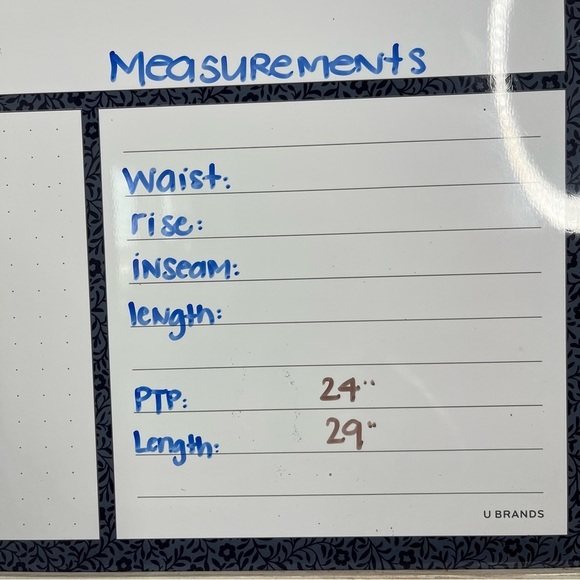 Measurements
Waist:
rise:
inseam:
length:
PTP: 24"
Length: 29"
U BRANDS